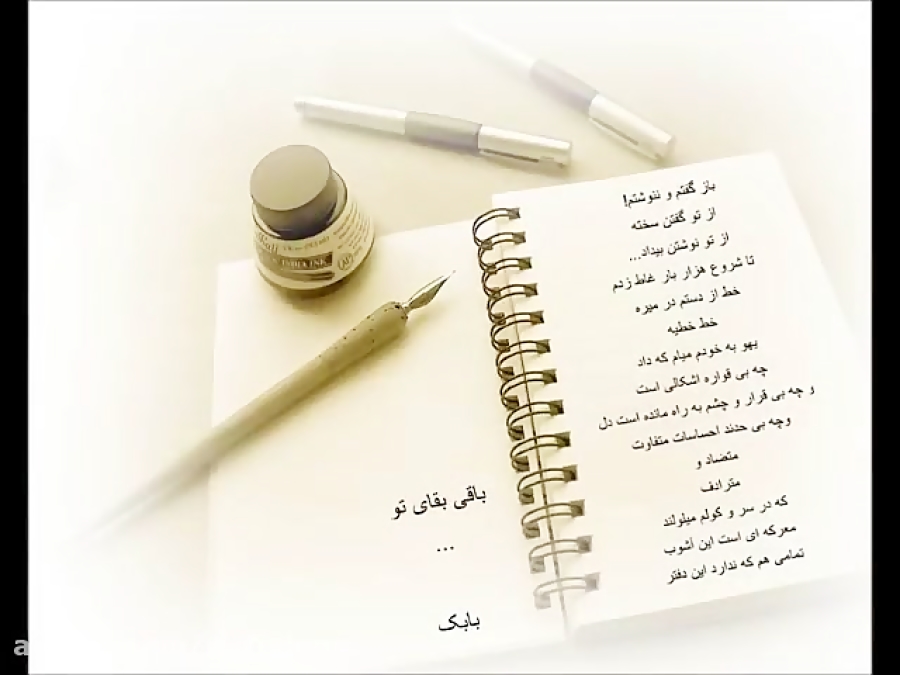 باز گفتم و ننوشتم!
از تو گفتن سخته
از تو نوشتن بیداد...
تا شروع هزار بار غلط زدم
خط از دستم در میره
خط خطیه
یهو به خودم میام که داد
چه بی قواره اشکالی است
و چه بی قرار و چشم به راه مانده است دل
وچه بی حدند احساسات متفاوت
متضاد و
مترادف
که در سر و کولم میلولند
معرکه ای است این آشوب
تمامی هم که ندارد این دفتر
باقی بقای تو
...
بابک
INDIA INK